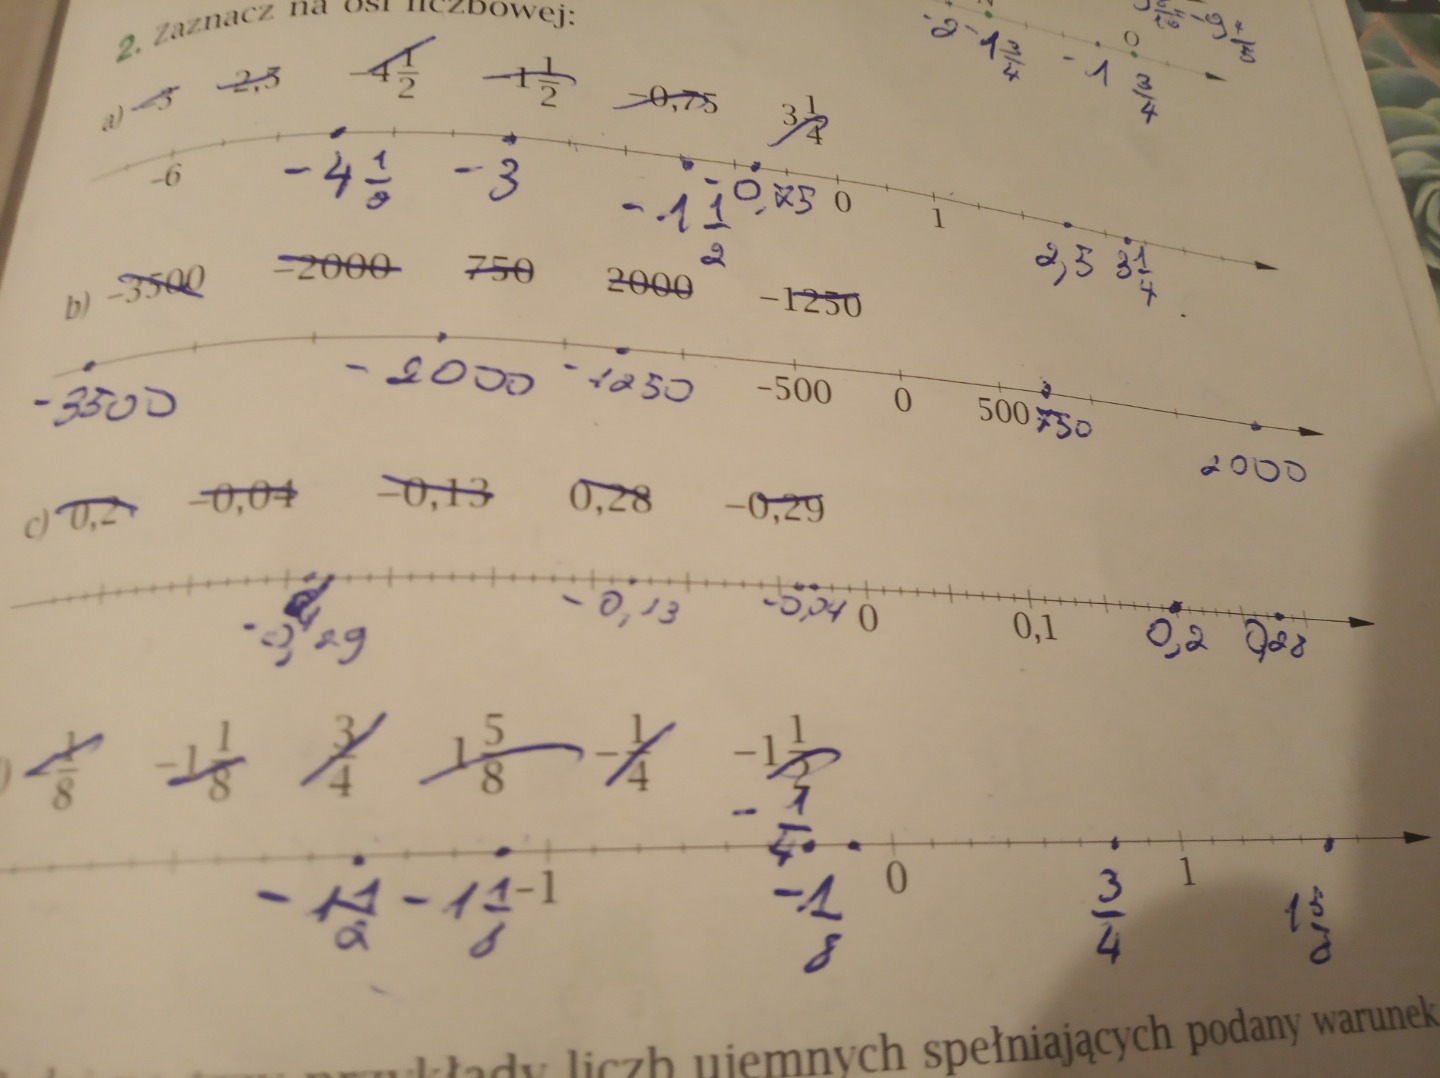 2. Zaznacz na osi liczbowej:
-2 -1 3/4 -1 0 3/4
a) -3 2,5 -4 1/2 -1 1/2 -0,75 3 1/4
-6 0 1
-4 1/2 -3 -1 1/2 -0,75 2,5 3 1/4
b) -3500 -2000 750 2000 -1250
-500 0 500
-3500 -2000 -1250 750 2000
c) 0,2 -0,04 -0,13 0,28 -0,29
0 0,1
-0,29 -0,13 -0,04 0,2 0,28
) -1/8 -1 1/8 3/4 1 5/8 -1/4 -1 1/2
-1/4
-1 0 1
-1 1/2 -1 1/8 -1/8 3/4 1 5/8
liczb ujemnych spełniających podany warunek